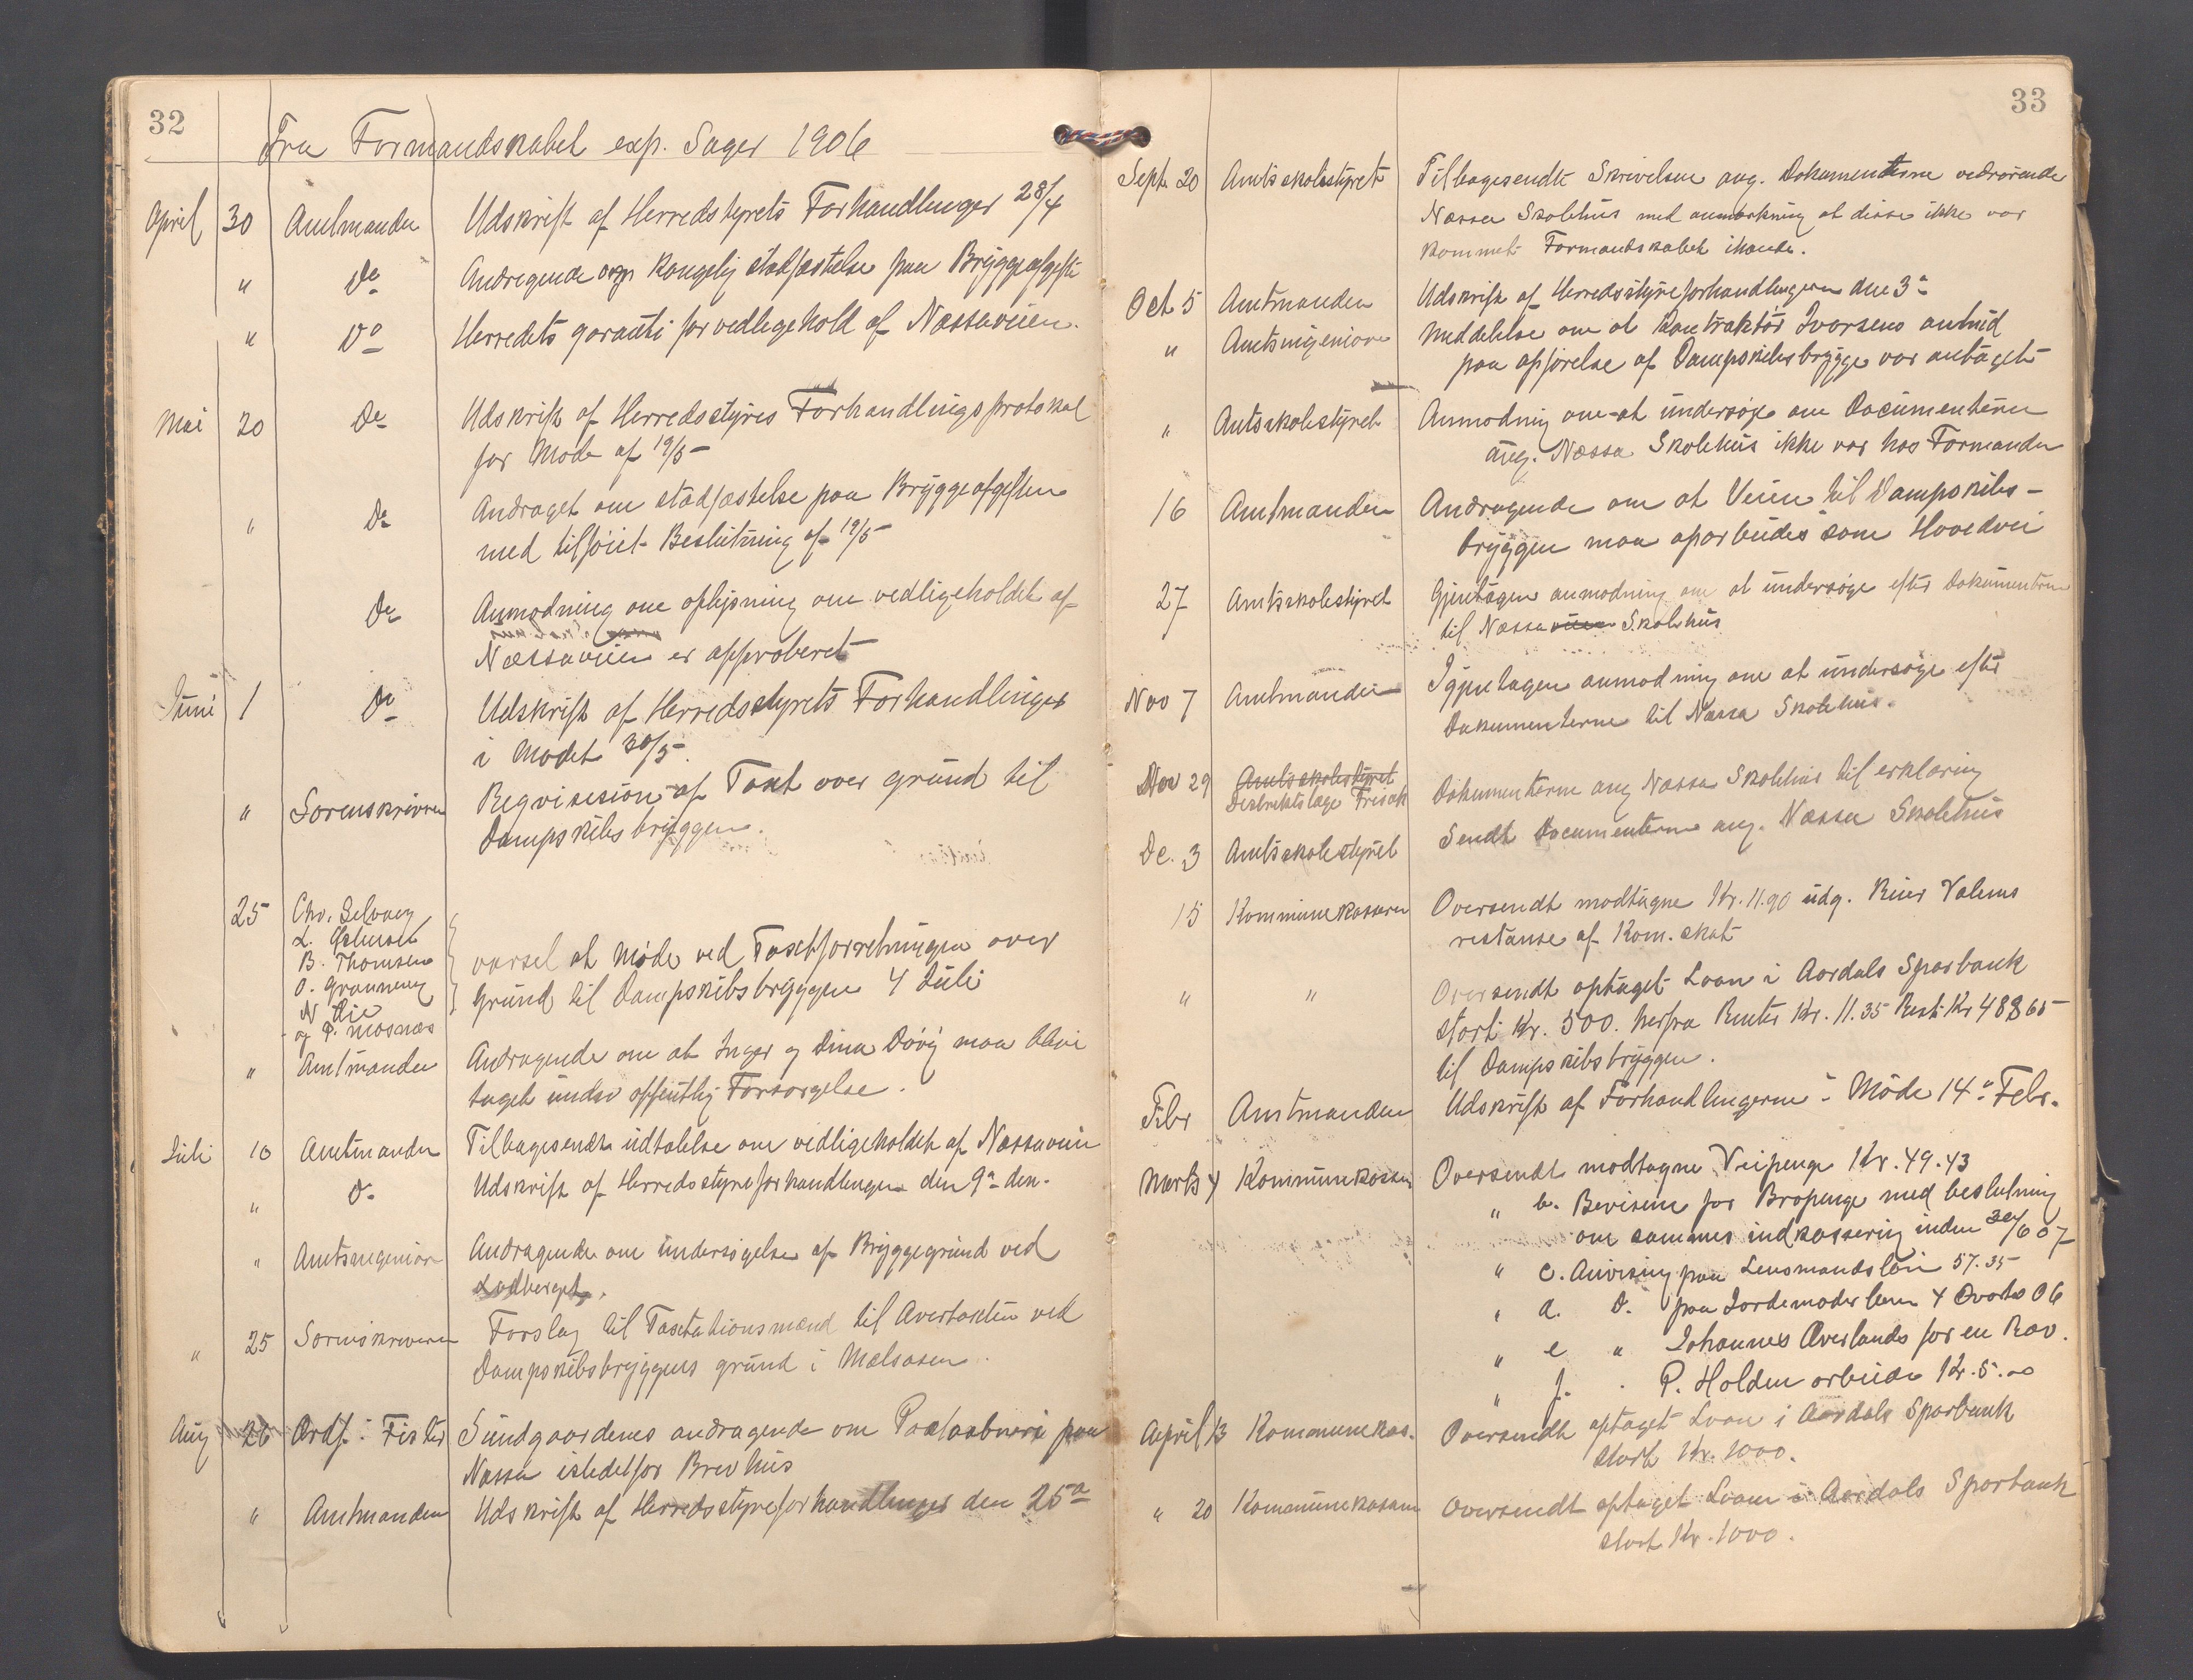 32
Fra Formandskabet exp. Sager 1906
April 30 Amtmanden Udskrift af Herredstyrets Forhandlinger 28/4
" Do Andragende om Kongelig stadfæstelse paa Bryggeafgift
" Do Herredets garanti for vedligehold af Næssaveien.
Mai 20 Do Udskrift af Herredsstyres Forhandlingsprotokol
for Møde af 19/5
" Do Andraget om stadfæstelse paa Bryggeafgiften
med tilføiet Beslutning af 19/5
Do Anmodning om oplysning om vedligeholdet af
Næssaveien er approberet
Juni 1 Do Udskrift af Herredsstyrets Forhandlinger
i Mødet 30/5.
" Sorenskriveren Reqvisision af Taxt over grund til
Dampskibsbryggen.
25 Chr. Selvaag
L. Østensen
B. Thomsen
O. Grønnevig
N. Lie
og P. Mosnæs
varsel at Møde ved Taxtforretningen over
Grund til Dampskibsbryggen 4 Juli
" Amtmanden Andragende om at Inger og Dina Døvig maa blive
taget under offentlig Forsørgelse.
Juli 10 Amtmanden Tilbagesendt udtalelse om vedligeholdet af Næssaveien
" Do Udskrift af Herredsstyreforhandlingen den 9de den.
" Amtsingeniør Andragende om undersøgelse af Bryggegrund ved
Ladberget.
" 25 Sorenskriveren Forslag til Taxtationsmænd til Overtakten ved
Dampskibsbryggens grund i Mælsosen.
Aug 26 Ordf. i Fister Sundgaardenes andragende om Postaabneri paa
Næssa istedetfor Brevhus
" Amtmanden Udskrift af Herredsstyreforhandlinger den 25de
33
Sept. 20 Amtsskolestyret Tilbagesendt Skrivelsen ang. Dokumenterne vedrørende
Næssa Skolehus med anmærkning at disse ikke var
kommet Formandskabet ihænde.
Oct 5 Amtmanden Udskrift af Herredsstyreforhandlingerne den 3de
" Amtsingeniøren Meddelelse om at Kontraktør Ivarsens anbud
paa opførelse af Dampskibsbrygge var antaget
" Amtsskolestyret Anmodning om at undersøge om Documenterne
ang. Næssa Skolehus ikke var hos Formanden
16 Amtmanden Andragende om at Veien til Dampskibs-
bryggen maa oparbeides som Hovedvei
27 Amtsskolestyret Gjentagen anmodning om at undersøge efter Dokumenterne
til Næssaveien Skolehus
Nov 7 Amtmanden Igjentagen anmodning om at undersøge efter
Dokumenterne til Næssa Skolehus.
Nov 29 Amtsskolestyret
Destriktslæge Frisak Dokumenterne ang Næssa Skolehus til erklæring
De. 3 Amtsskolestyret Sendt Documenterne ang. Næssa Skolehus
15 Kommunekassereren Oversendt modtagne Kr. 11.90 udg. Reier Valens
restanse af Kom. skat
" " Oversendt optaget Laan i Aardals Sparbank
stort Kr. 500. herfra Renter Kr. 11.35 Rest Kr 488 65
til Dampskibsbryggen.
Febr Amtmanden Udskrift af Forhandlingerne i Møde 14de Febr.
Marts 4 Kommunekassen Oversendt modtagne Veipenge Kr. 49.43
" b. Bevisene for Bropenge med beslutning
om sammes indkassering inden 30/6 07
" c. Anvisning paa Lensmandsløn 57.35
" d. Do. paa Jordemoderløn 4 Qvartal 06
" e " Johannes Øverlands for en Rov.
" f. . P. Holden arbeide Kr. 5.00
April 13 Kommunekas. Oversendt optaget Laan i Aardals Sparbank
stort Kr. 1000.
" 20 Kommunekassen Oversendt optaget Laan i Aardals Sparbank
stort Kr. 1000.